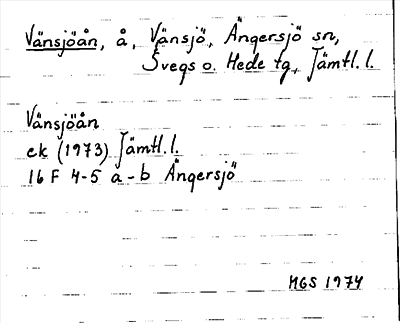 Vänsjöån, å, Vänsjö, Ängersjö sn,
Svegs o. Hede tg, Jämtl. l.
Vänsjöån
ek (1973) Jämtl. l.
16 F 4-5 a-b Ängersjö
MGS 1974